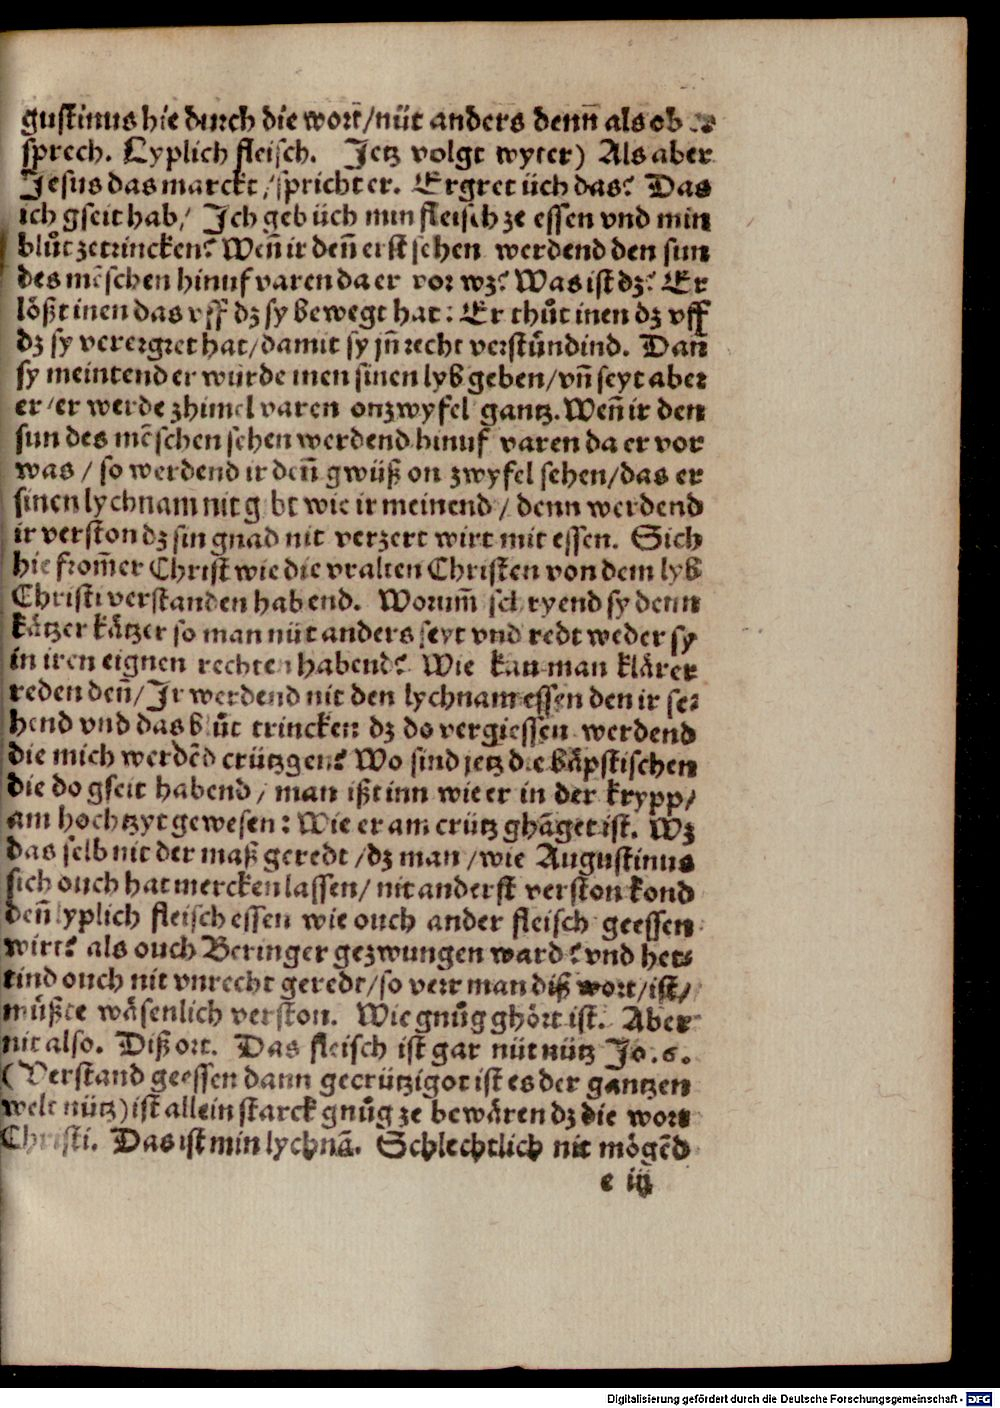 gustinus hie durch die wort/nüt anders deñ als ob
sprech. Lyplich fleisch. Jetz volgt wyter) Als aber
Jesus das marckt/spricht er. Ergret üch das? Das
ich gseit hab/ Jch geb üch min fleisch ze essen vnd min
blůt zetrincken? Weñ ir deñ erst sehen werdend den sun
des mēschen hinuf varen da er vor wz? Was ist dz? Er
lößt inen das vff dz sy bewegt hat: Er thůt inen dz vff
dz sy verergret hat/damit sy jñ recht verstůndind. Dañ
sy meintend er wurde inen sinen lyb geben/vñ seyt aber
er/er werde zhimel varen onzwyfel gantz. Weñ ir den
sun des mēschen sehen werdend hinuf varen da er vor
was/so werdend ir deñ gwüß on zwyfel sehen/das er
sinen lychnam nit gibt wie ir meinend/denn werdend
ir verston dz sin gnad nit verzert wirt mit essen. Sich
hie from̄er Christ wie die vralten Christen von dem lyb
Christi verstanden habend. Worum̄ schryend sy denn
kätzer kätzer so man nüt anders seyt vnd redt weder sy
in iren eignen rechten habend? Wie kan man klärer
reden deñ/Jr werdend nit den lychnam essen den ir se⸗
hend vnd das blůt trincken dz do vergiessen werdend
die mich werdēd crützgen? Wo sind jetz die bäpstischen
die do gseit habend/man ißt inn wie er in der krypp/
am hochtzyt gewesen: Wie er am crütz ghāget ist. Wz
das selb nit der maß geredt/dz man/wie Augustinus
sich ouch hat mercken lassen/nit anderst verston kond
deñ lyplich fleisch essen wie ouch ander fleisch geessen
wirt? als ouch Beringer gezwungen ward? vnd het⸗
tind ouch nit vnrecht geredt/so verr man diß wort/ist/
můßte wäsenlich verston. Wie gnůg ghört ist. Aber
nit also. Diß ort. Das fleisch ist gar nüt nütz Jo. 6.
(Verstand geessen dann gecrützigot ist es der gantzen
welt nütz) ist allein starck gnůg ze bewären dz die wort
Christi. Das ist min lychnā. Schlechtlich nit mögēd
e iij
Digitalisierung gefördert durch die Deutsche Forschungsgemeinschaft - DFG